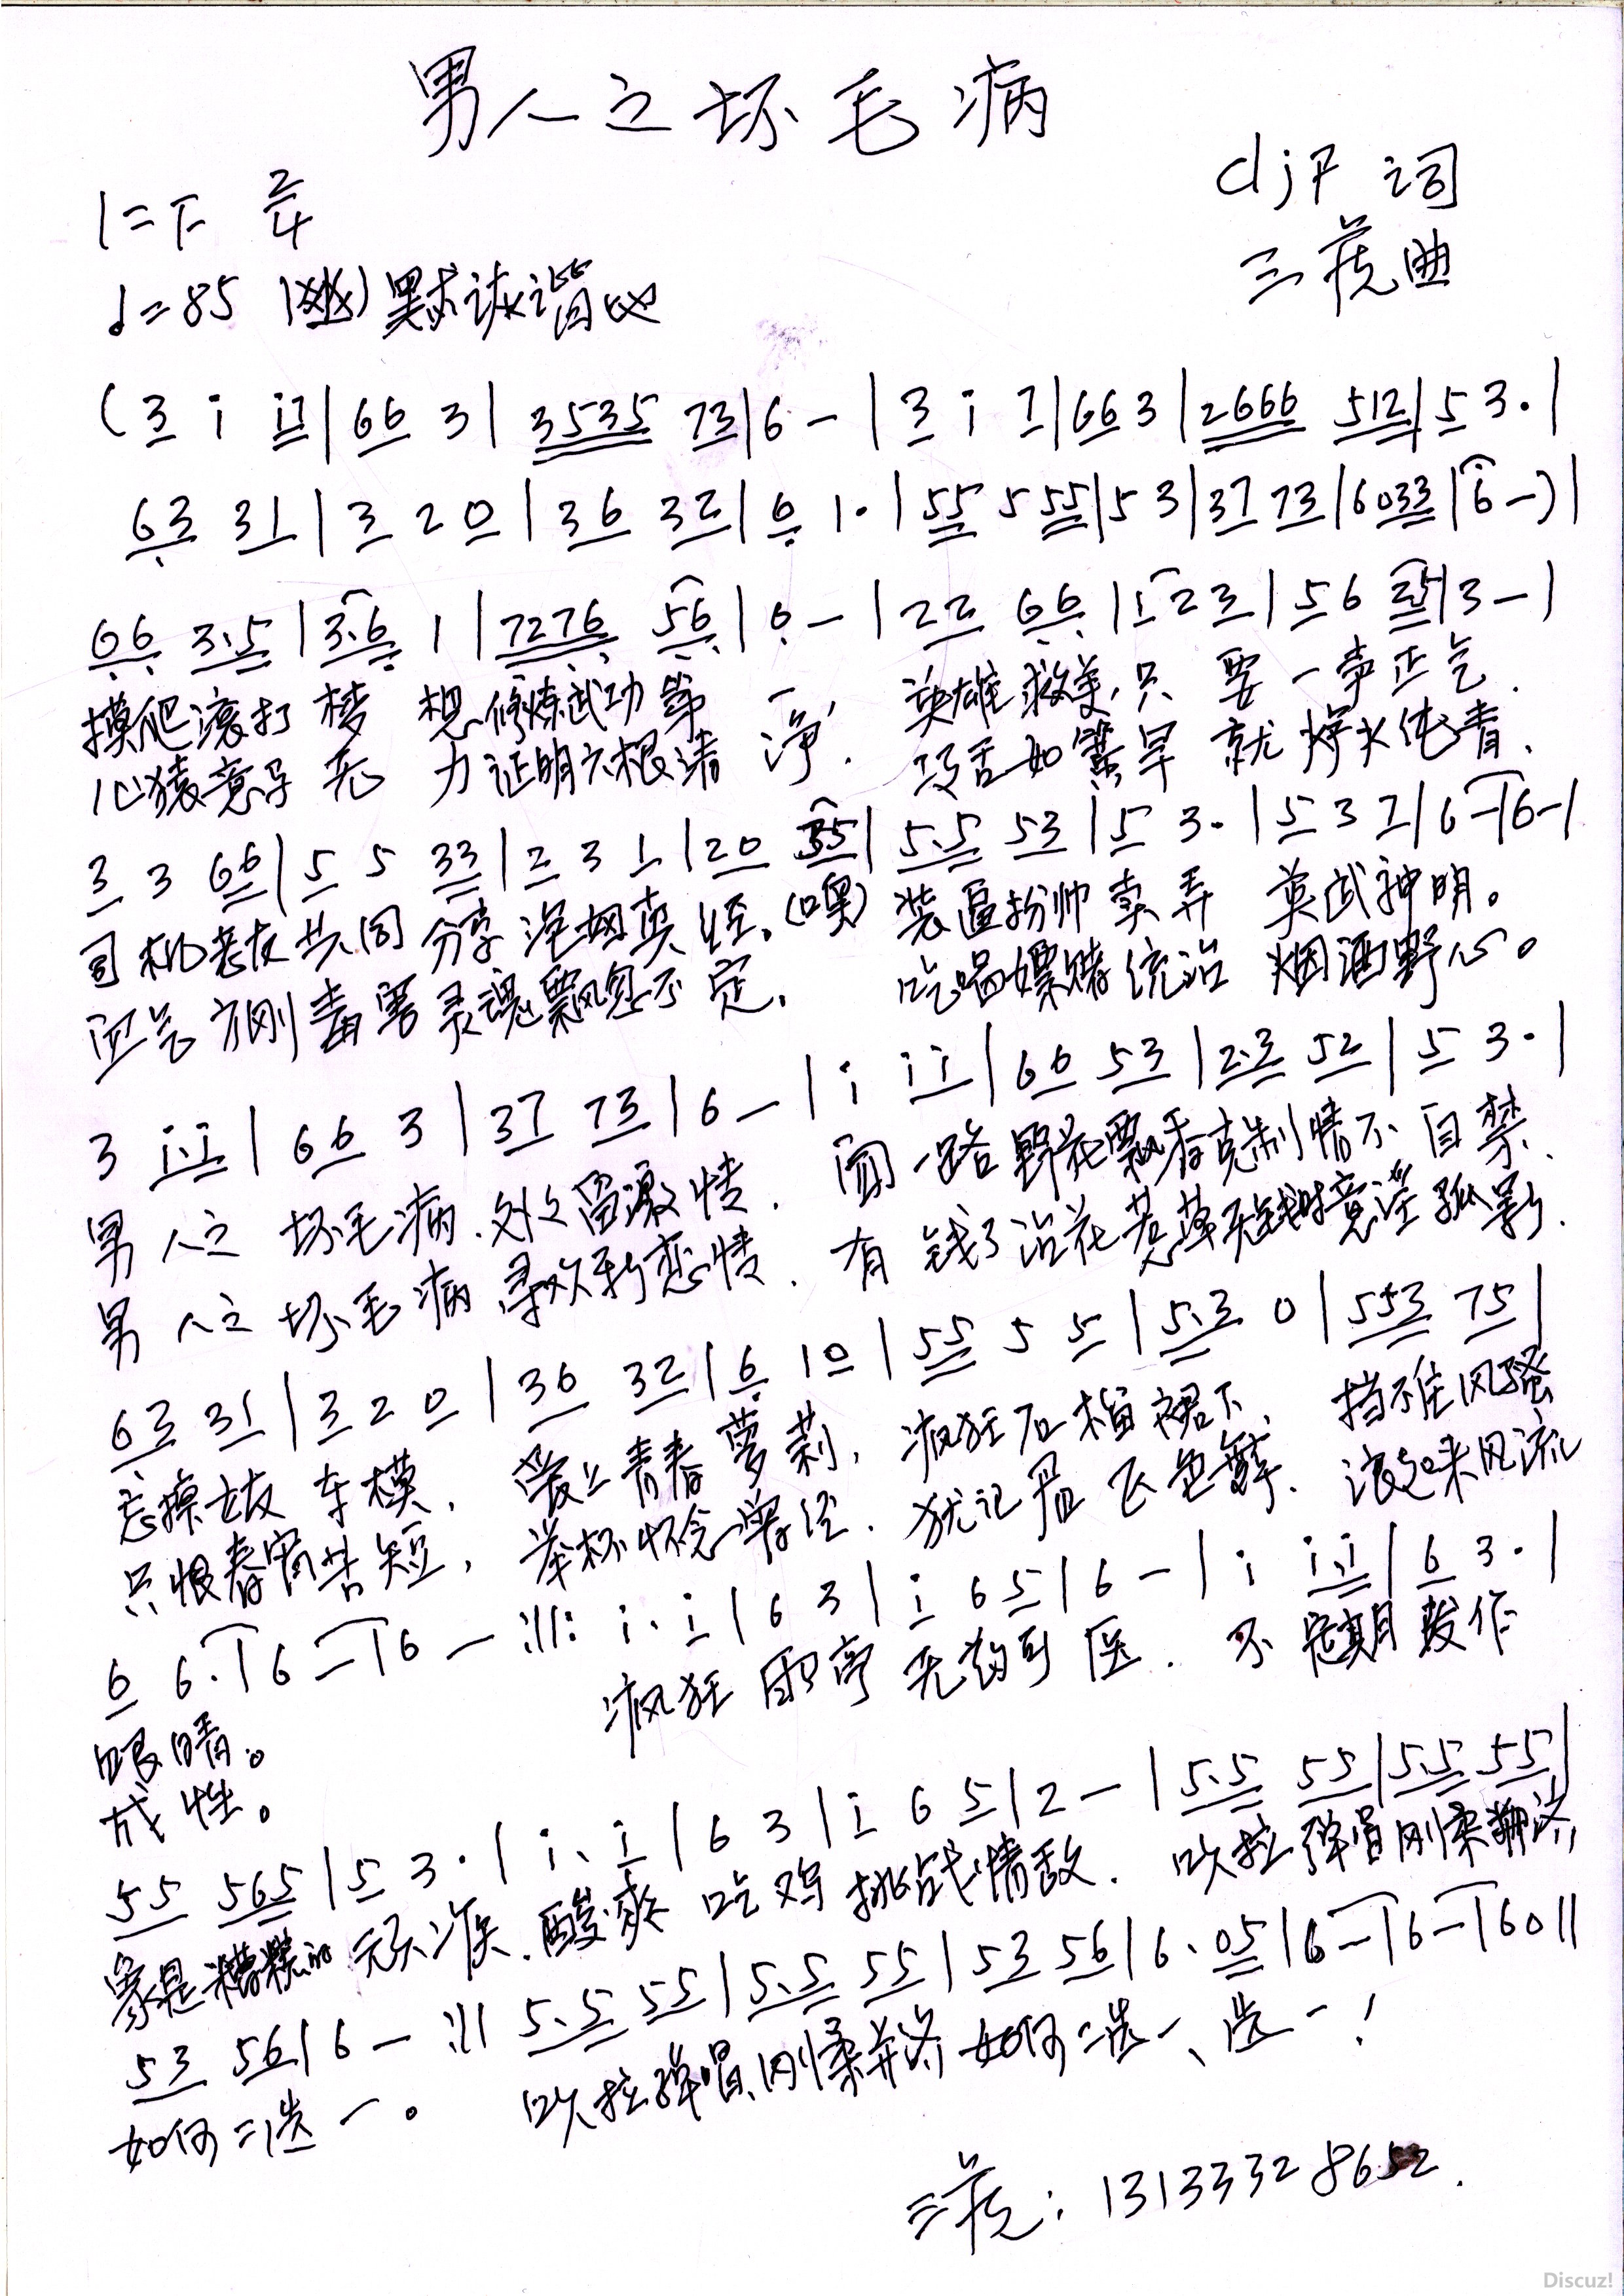 男人之坏毛病
1=F 2/4
djf 词
三荒曲
♩=85 (幽)默诙谐地
(3 i i7|66 3|3535 73|6 -|3 i 7|663|2666 512|5 3·|
63 31|3 2 0|36 32|6 1·|55 5 55|5 3|37 73|6033|6 -)|
66 3·5|3·6 1|7276 56|6 -|22 66|i 2 3|5 6 35|3 -|
摸爬滚打 梦 想 修炼武功 第 一, 英雄救美,只 要 一声正气.
心猿意马 无 力证明六根清 净. 巧舌如簧早 就 炉火纯青.
3 3 66|5 5 33|2 3 1|20 35|5·5 53|5 3·|5 3 7|6 -|6 -|
司机老友共同 分享 泡妞真 经.(噢) 装逼扮帅 卖弄 英武神明。
血气方刚毒害灵魂飘忽不 定. 吃喝嫖赌统治 烟酒野心。
3 i·i|66 3|37 73|6 -|i i i|66 53|2·3 52|5 3·|
男 人之 坏毛病.处处留激情. 闻一路野花飘香克制情不自禁.
男 人之 坏毛病 寻欢新恋情. 有 钱了沾花惹草无钱时意淫孤影.
63 31|3 2 0|36 32|6 10|55 5 5|5·3 0|553 75|
忘掉女友 车模, 爱上青春萝莉, 疯狂石榴裙下. 挡不住风骚
只恨春宵苦短, 举杯怀念曾经. 犹记眉飞色舞. 滚起来风流
6 6·|6 -|6 -:||: i· i|6 3|i 6 5|6 -|i i·i|6 3·|
眼睛。 疯狂 无药可医. 不定期发作
成性。
55 565|5 3·|i· i|6 3|i 6 5|2 -|5·5 55|5·5 55|
家是糟糕的 酸爽 吃鸡 挑战情敌. 吹拉弹唱刚柔并济
53 56|6 -:|| 5·5 55|5·5 55|53 56|6·05|6 -|6 -|60||
如何二选一。 吹拉弹唱刚柔并济 如何二选一、选一!
三荒:13133328652.
Discuz!